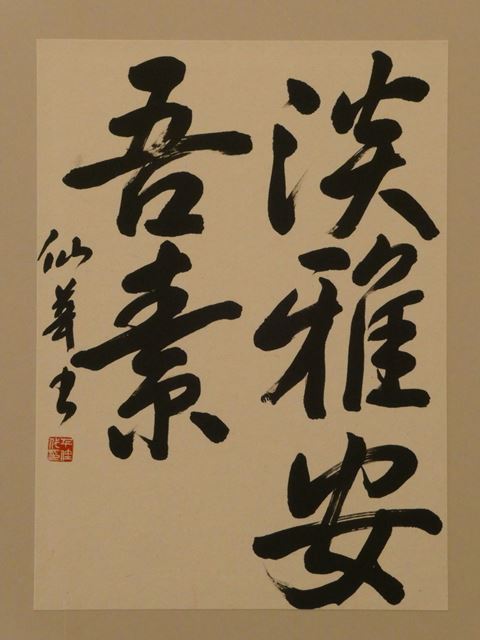 淡雅安
吾素
仙華书